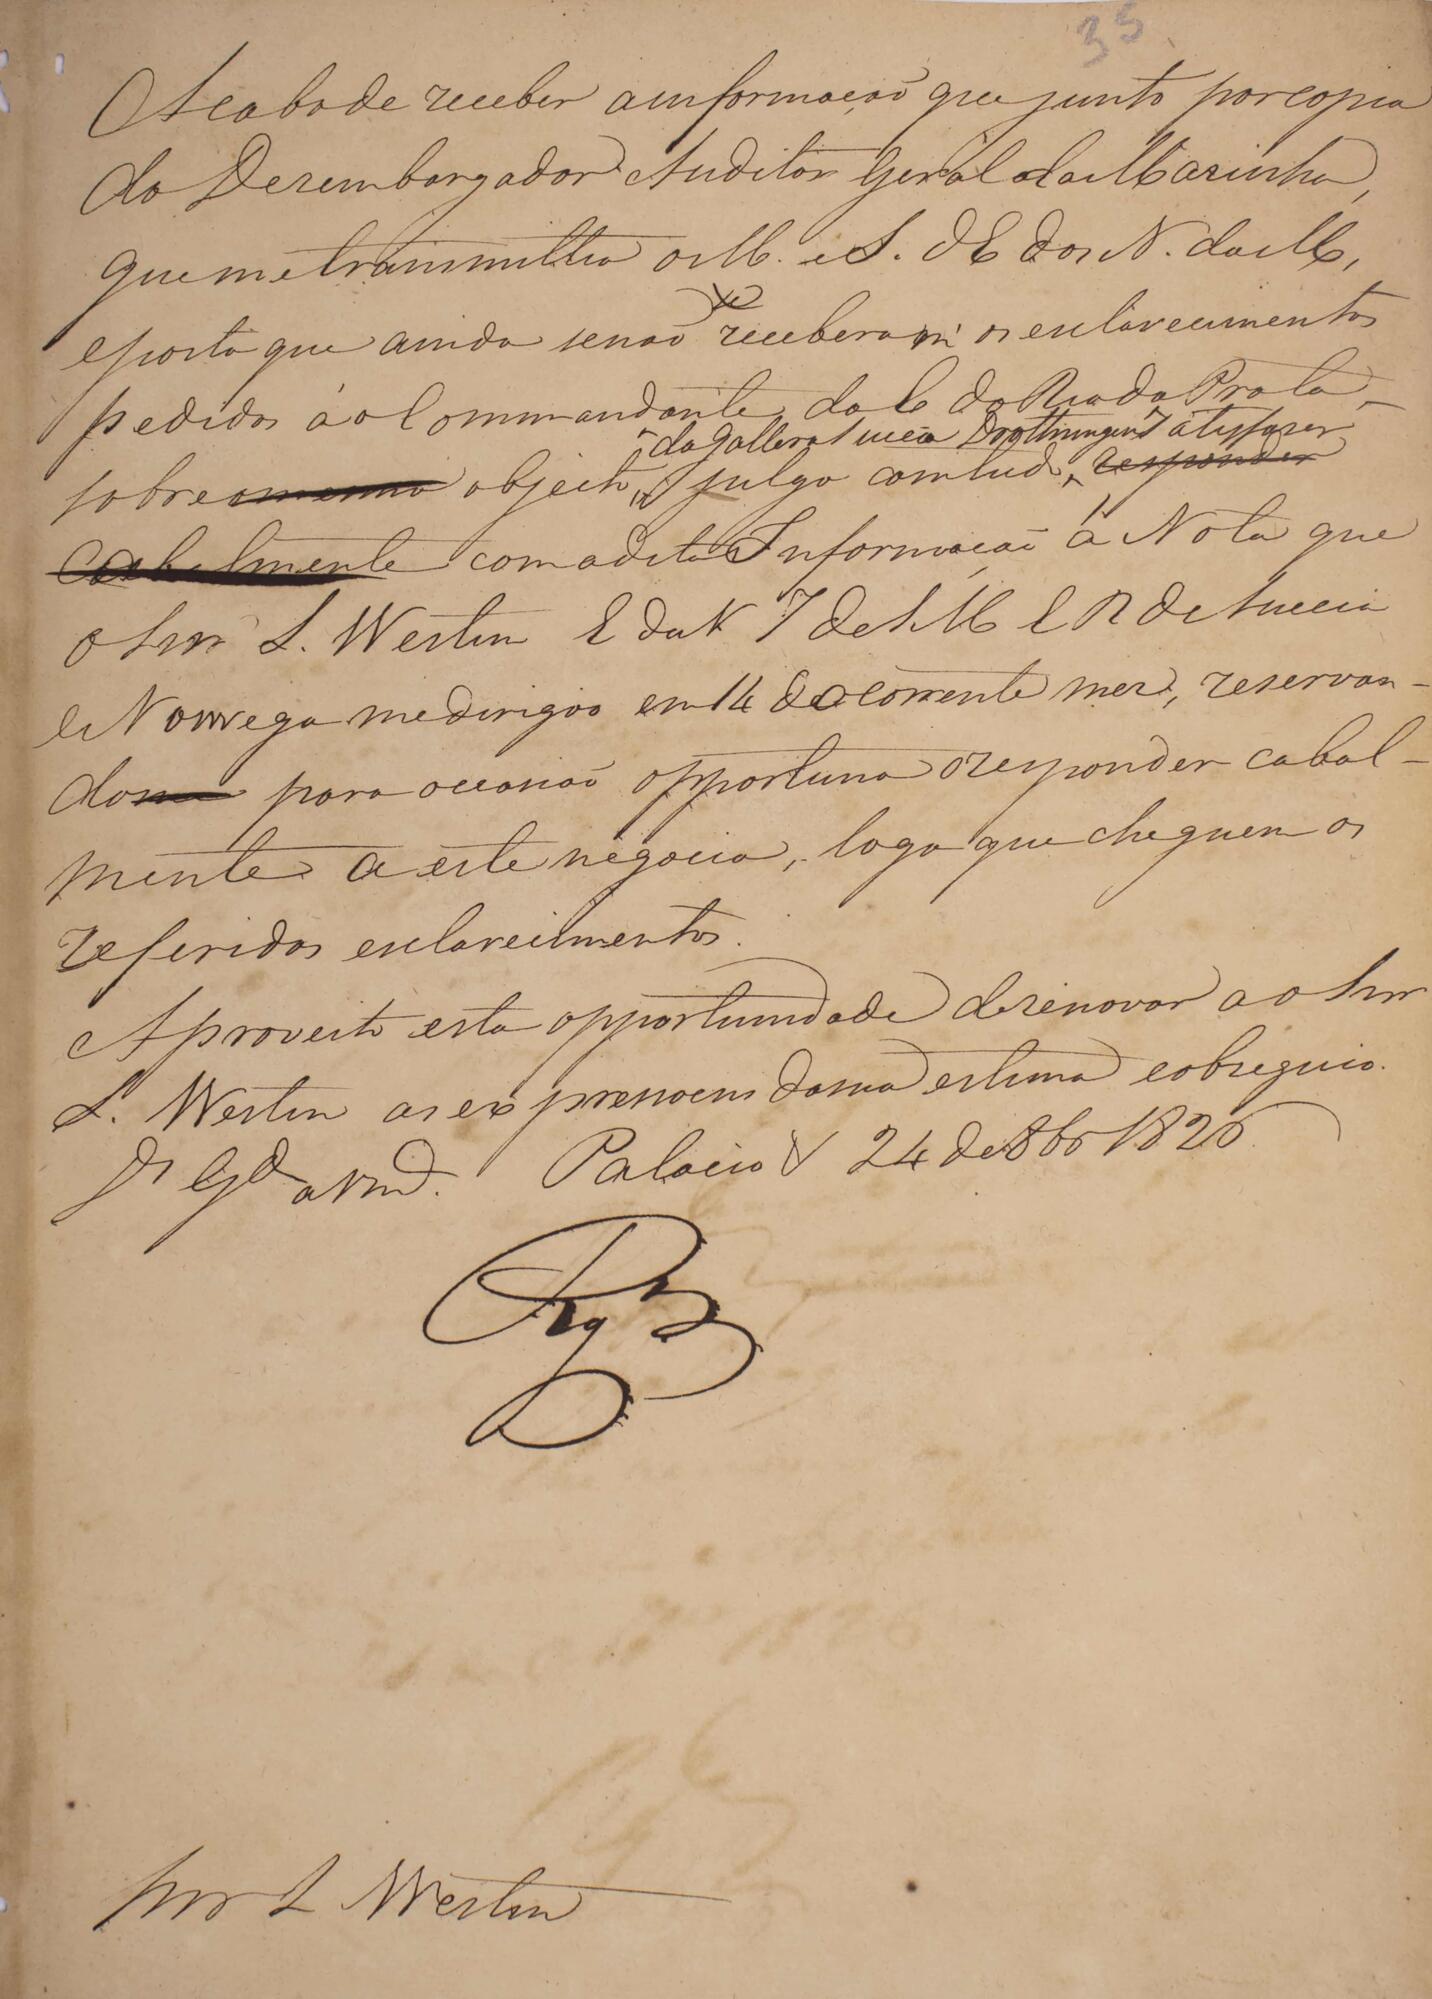 35
Acabo de receber a informação que junto por copia
do Dezembargador Auditor Geral da Marinha,
que me transmittio o M. e S. d'E dos N. da M,
e posto que ainda senão receberam os esclarecimentos
pedidos ao Commandante da E do Rio da Prata,
da Gallera Sueca Drottningen Satisfazer
sobre o mesmo objecto, julgo comtudo, responder
Cabalmente com a dita Informação á Nota que
o Snr L. Westin E da N 7 de S M E R de Suecia
e Norwega me dirigio em 14 do corrente mez, reservan-
dome para occasião opportuna o responder cabal-
mente a este negocio, logo que cheguem os
referidos esclarecimentos.
Aproveito esta opportunidade de renovar ao Snr
L. Westin as expressoens da ma estima e obsequio.
Ds Gde a Vmd. Palacio 24 de 8bro 1826
Snr L Westin